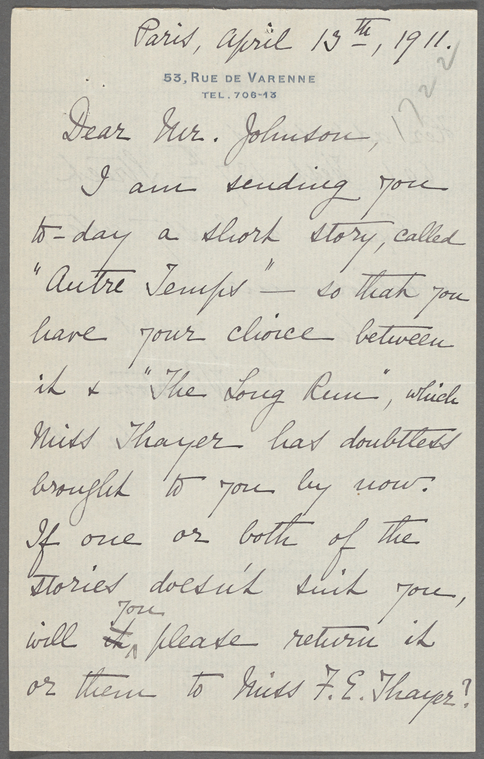 Paris, April 13th, 1911.
1722
53, RUE DE VARENNE
TEL. 706-13
Dear Mr. Johnson,
I am sending you
to-day a short story, called
"Autre Temps" — so that you
have your choice between
it & "The Long Run", which
Miss Thayer has doubtless
brought to you by now.
If one or both of the
stories doesn't suit you,
will it you please return it
or them to Miss F. E. Thayer?